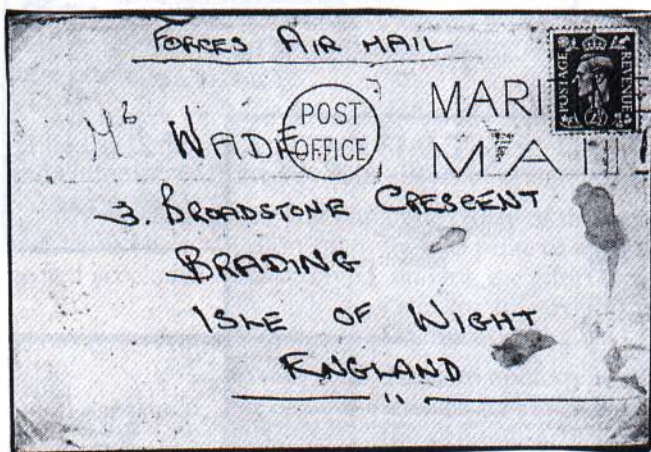 FORCES AIR MAIL
POSTAGE
REVENUE
POST
OFFICE
MARI
MAIL
WADE
3. BROADSTONE CRESCENT
BRADING
ISLE OF WIGHT
ENGLAND